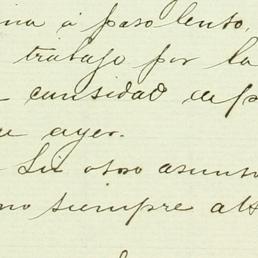 ina á paso lento,
trabajo por la
cantidad dep
ayer.
Sin otro asunto
mo siempre ats